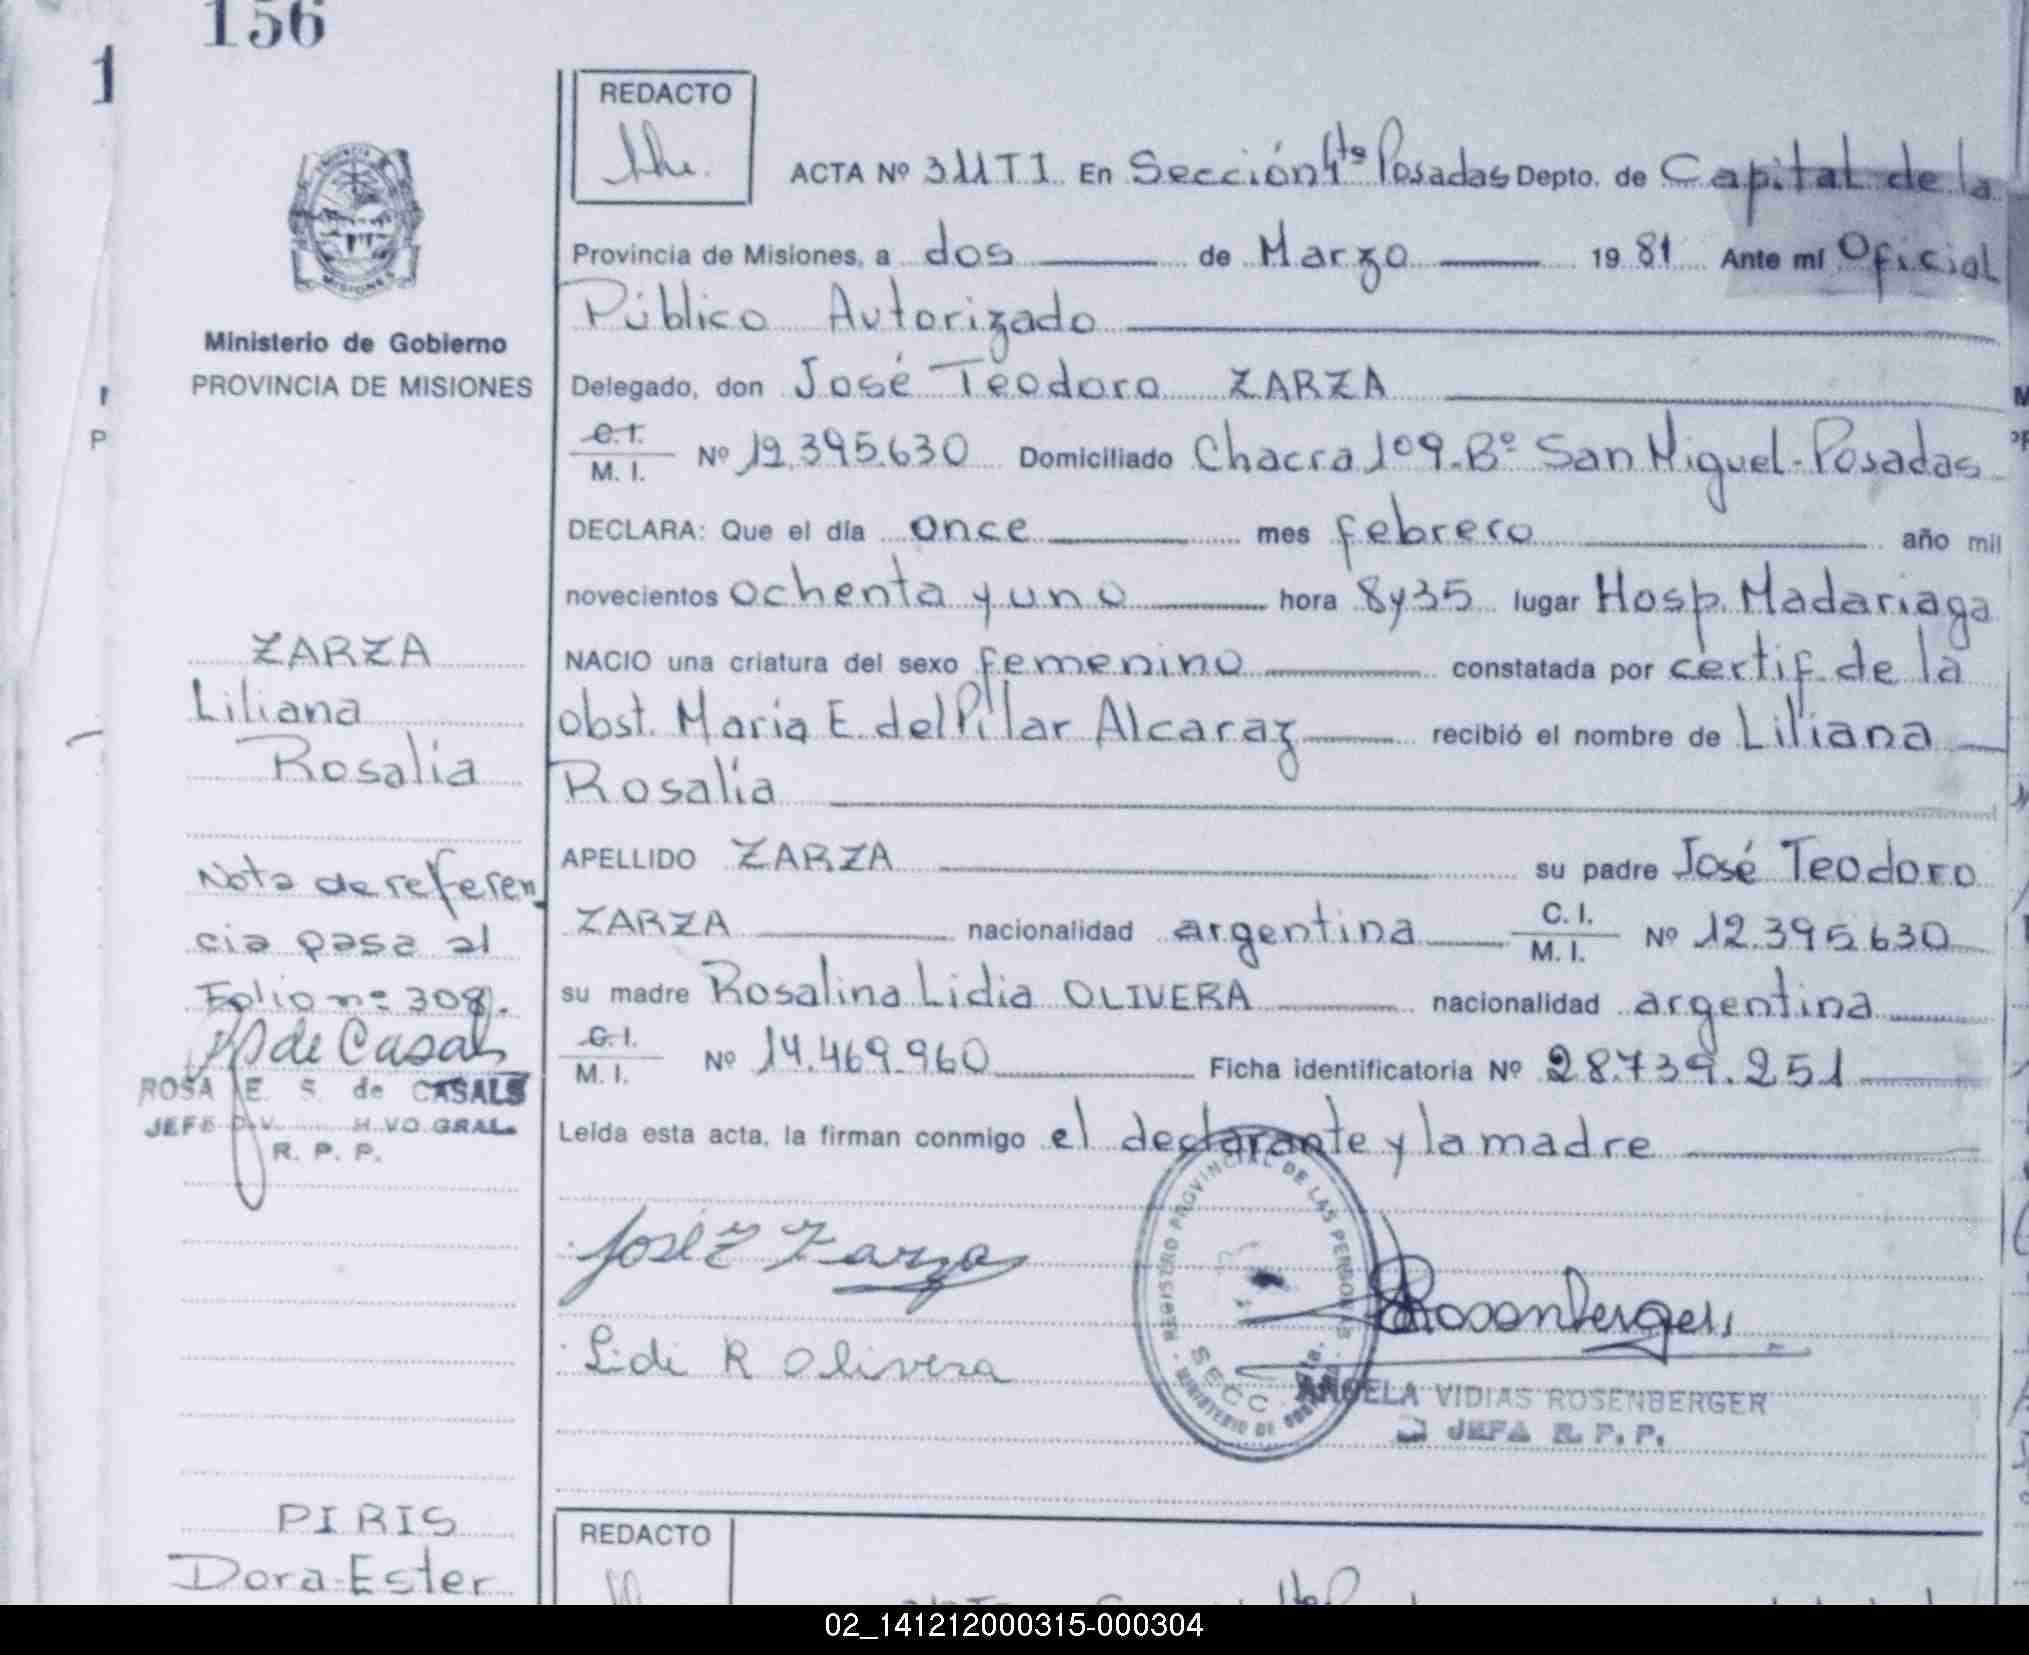 156
1
REDACTO
ACTA Nº 311 T I En Sección 4ta Posadas Depto. de Capital de la
Provincia de Misiones, a dos de Marzo 1981 Ante mí Oficial
Público Autorizado
Ministerio de Gobierno
PROVINCIA DE MISIONES
Delegado, don José Teodoro ZARZA
C.I.
M. I. Nº 12.395.630 Domiciliado Chacra 109-Bº San Miguel-Posadas
DECLARA: Que el día once mes febrero año mil
novecientos ochenta y uno hora 8y35 lugar Hosp. Madariaga
ZARZA
Liliana
Rosalia
NACIO una criatura del sexo femenino constatada por certif. de la
obst. María E. del Pilar Alcaraz recibió el nombre de Liliana
Rosalía
APELLIDO ZARZA su padre José Teodoro
ZARZA nacionalidad argentina C. I.
M. I. Nº 12.395.630
su madre Rosalina Lidia OLIVERA nacionalidad argentina
C.I.
M. I. Nº 14.469.960 Ficha identificatoria Nº 28.739.251
Leída esta acta, la firman conmigo el declarante y la madre
Nota de referen
cia pasa al
Folio nº 308.
de Casals
ROSA E. S. de CASALS
JEFE
GRAL.
R. P. P.
José Zarza
Lidi R Olivera
REGISTRO PROVINCIAL DE LAS PERSONAS
MINISTERIO DE
SECC. 4ta.
Rosenberger
ANGELA VIDIAS ROSENBERGER
JEFA R. P. P.
PIRIS
Dora Ester
REDACTO
02_141212000315-000304